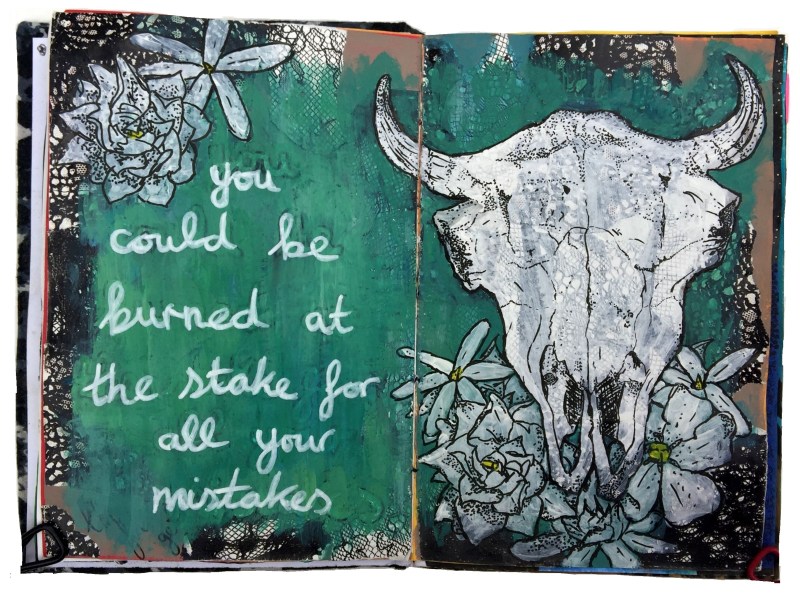 you
could be
burned at
the stake for
all your
mistakes